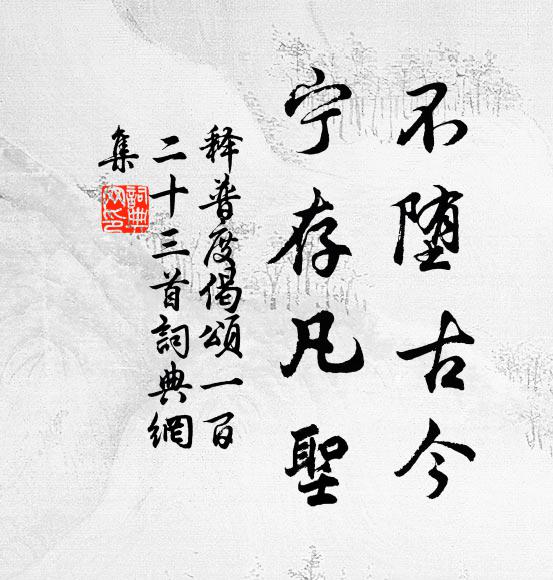 不堕古今
宁存凡聖
释普度偈頌一百
二十三首詞典網
集
詞典網印